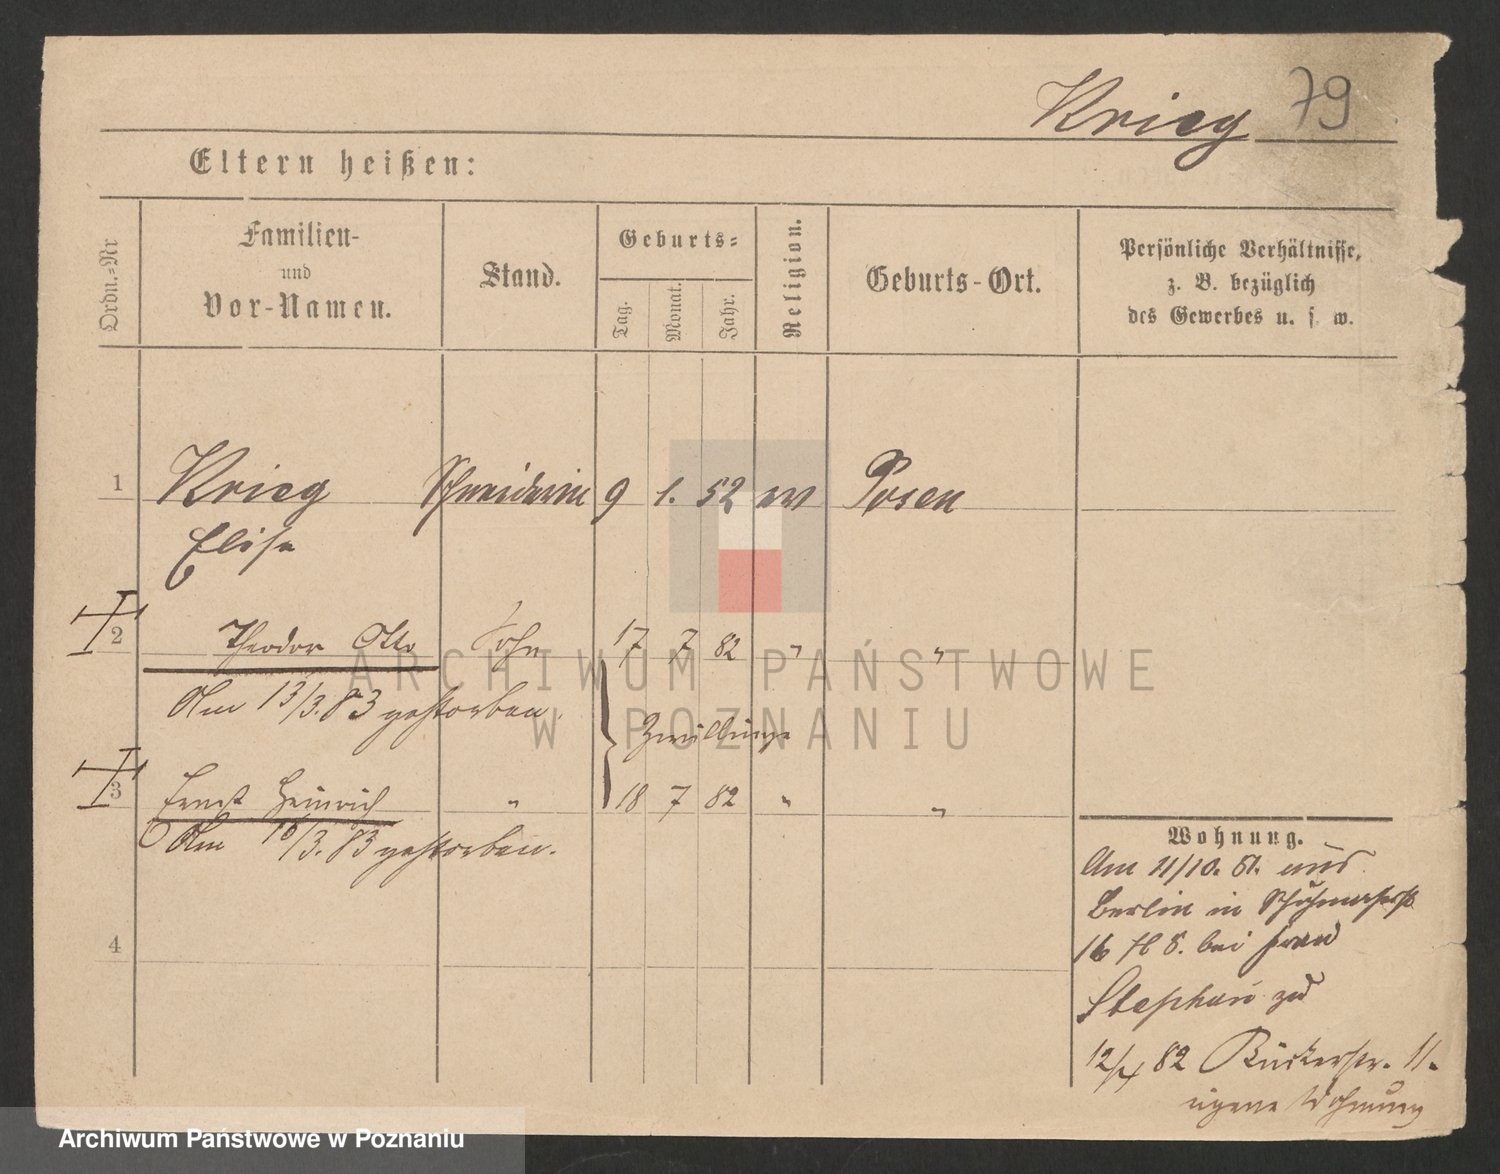 Krieg 79
Eltern heißen:
Ordn.=Nr
Familien-
und
Vor-Namen.
Stand.
Geburts=
Tag.
Monat.
Jahr.
Religion.
Geburts-Ort.
Persönliche Verhältnisse,
z. B. bezüglich
des Gewerbes u. s. w.
1 Krieg Schneiderin 9 1. 52 ev Posen
Elise
2 Theodor Otto Sohn 17 7 82 " "
Am 13/3. 83 gestorben.
Zwillinge
3 Ernst Heinrich " 18 7 82 " "
Am 18/3. 83 gestorben.
4
Wohnung.
Am 11/10. 81. aus
Berlin in Schuhmacherstr
16 bei Frau
Stephan zu
12/4 82 Bäckerstr. 11.
eigene Wohnung
ARCHIWUM PAŃSTWOWE
W POZNANIU
Archiwum Państwowe w Poznaniu